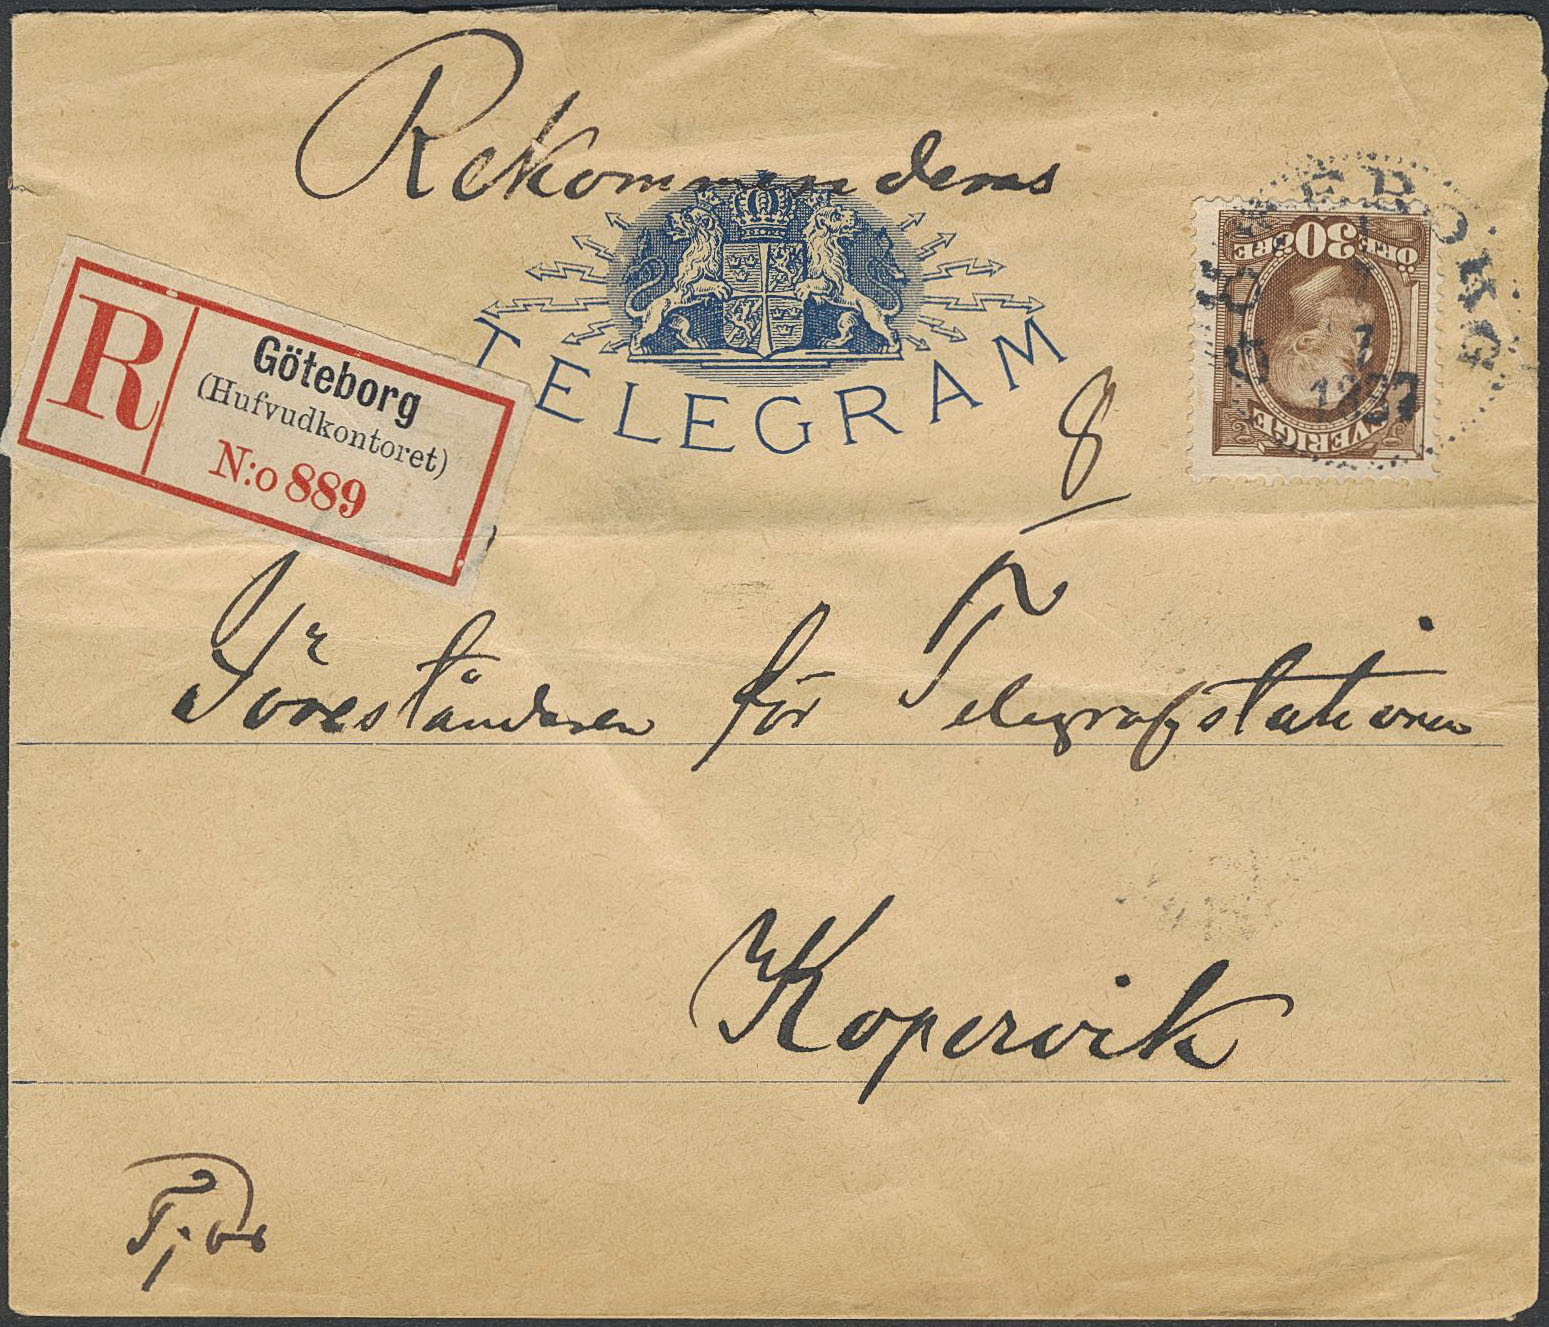 Rekommenderas
TELEGRAM
R
Göteborg
(Hufvudkontoret)
N:o 889
30
ÖRE ÖRE
SVERIGE
8
Föreståndaren för Telegrafstationen
Kopervik